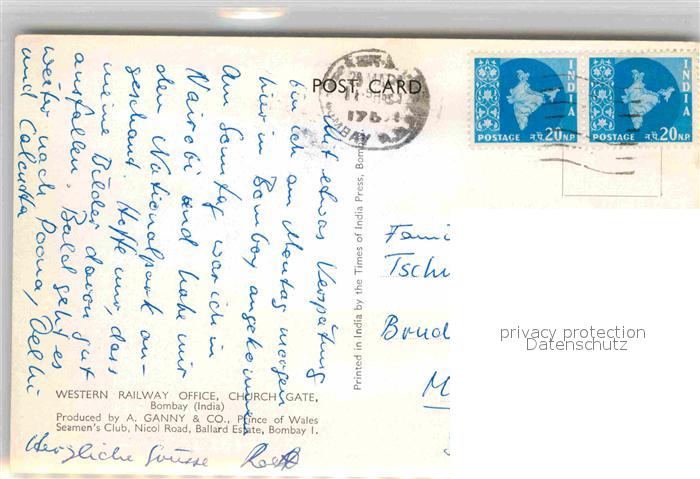 POST CARD
INDIA
POSTAGE न.पै. 20 N.P.
INDIA
POSTAGE न.पै. 20 N.P.
BOMBAY
Mit etwas Verspätung
bin ich am Montag morgen
hier in Bombay angekommen
Am Sonntag war ich in
Nairobi und habe mir
den Nationalpark an-
geschaut. Hoffe nur, dass
meine Bilder davon gut
ausfallen. Bald geht es
weiter nach Poona, Delhi
und Calcutta
Herzliche Grüsse
Printed in India by the Times of India Press, Bom
Fami
Tschu
Brud
M
WESTERN RAILWAY OFFICE, CHURCH GATE,
Bombay (India)
Produced by A. GANNY & CO., Prince of Wales
Seamen's Club, Nicol Road, Ballard Estate, Bombay 1.
privacy protection
Datenschutz